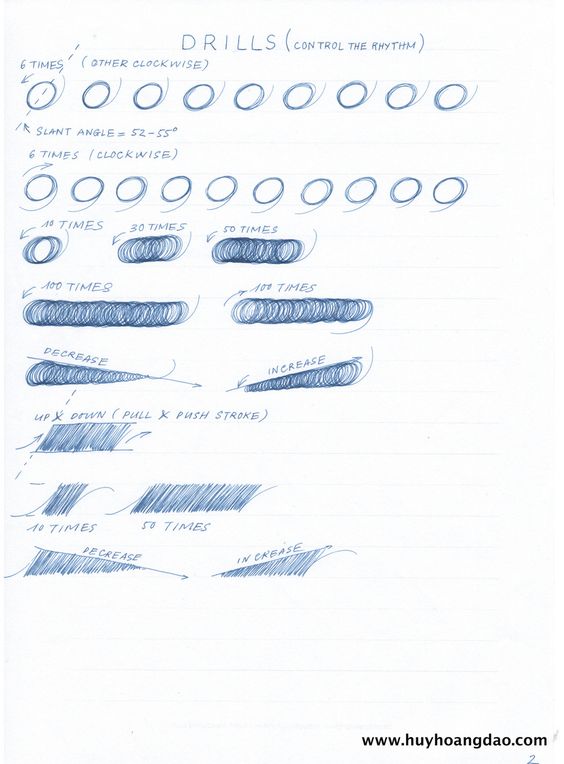 DRILLS (CONTROL THE RHYTHM)
6 TIMES (OTHER CLOCKWISE)
SLANT ANGLE = 52-55°
6 TIMES (CLOCKWISE)
10 TIMES 30 TIMES 50 TIMES
100 TIMES 100 TIMES
DECREASE INCREASE
UP X DOWN (PULL X PUSH STROKE)
10 TIMES 50 TIMES
DECREASE INCREASE
www.huyhoangdao.com
2